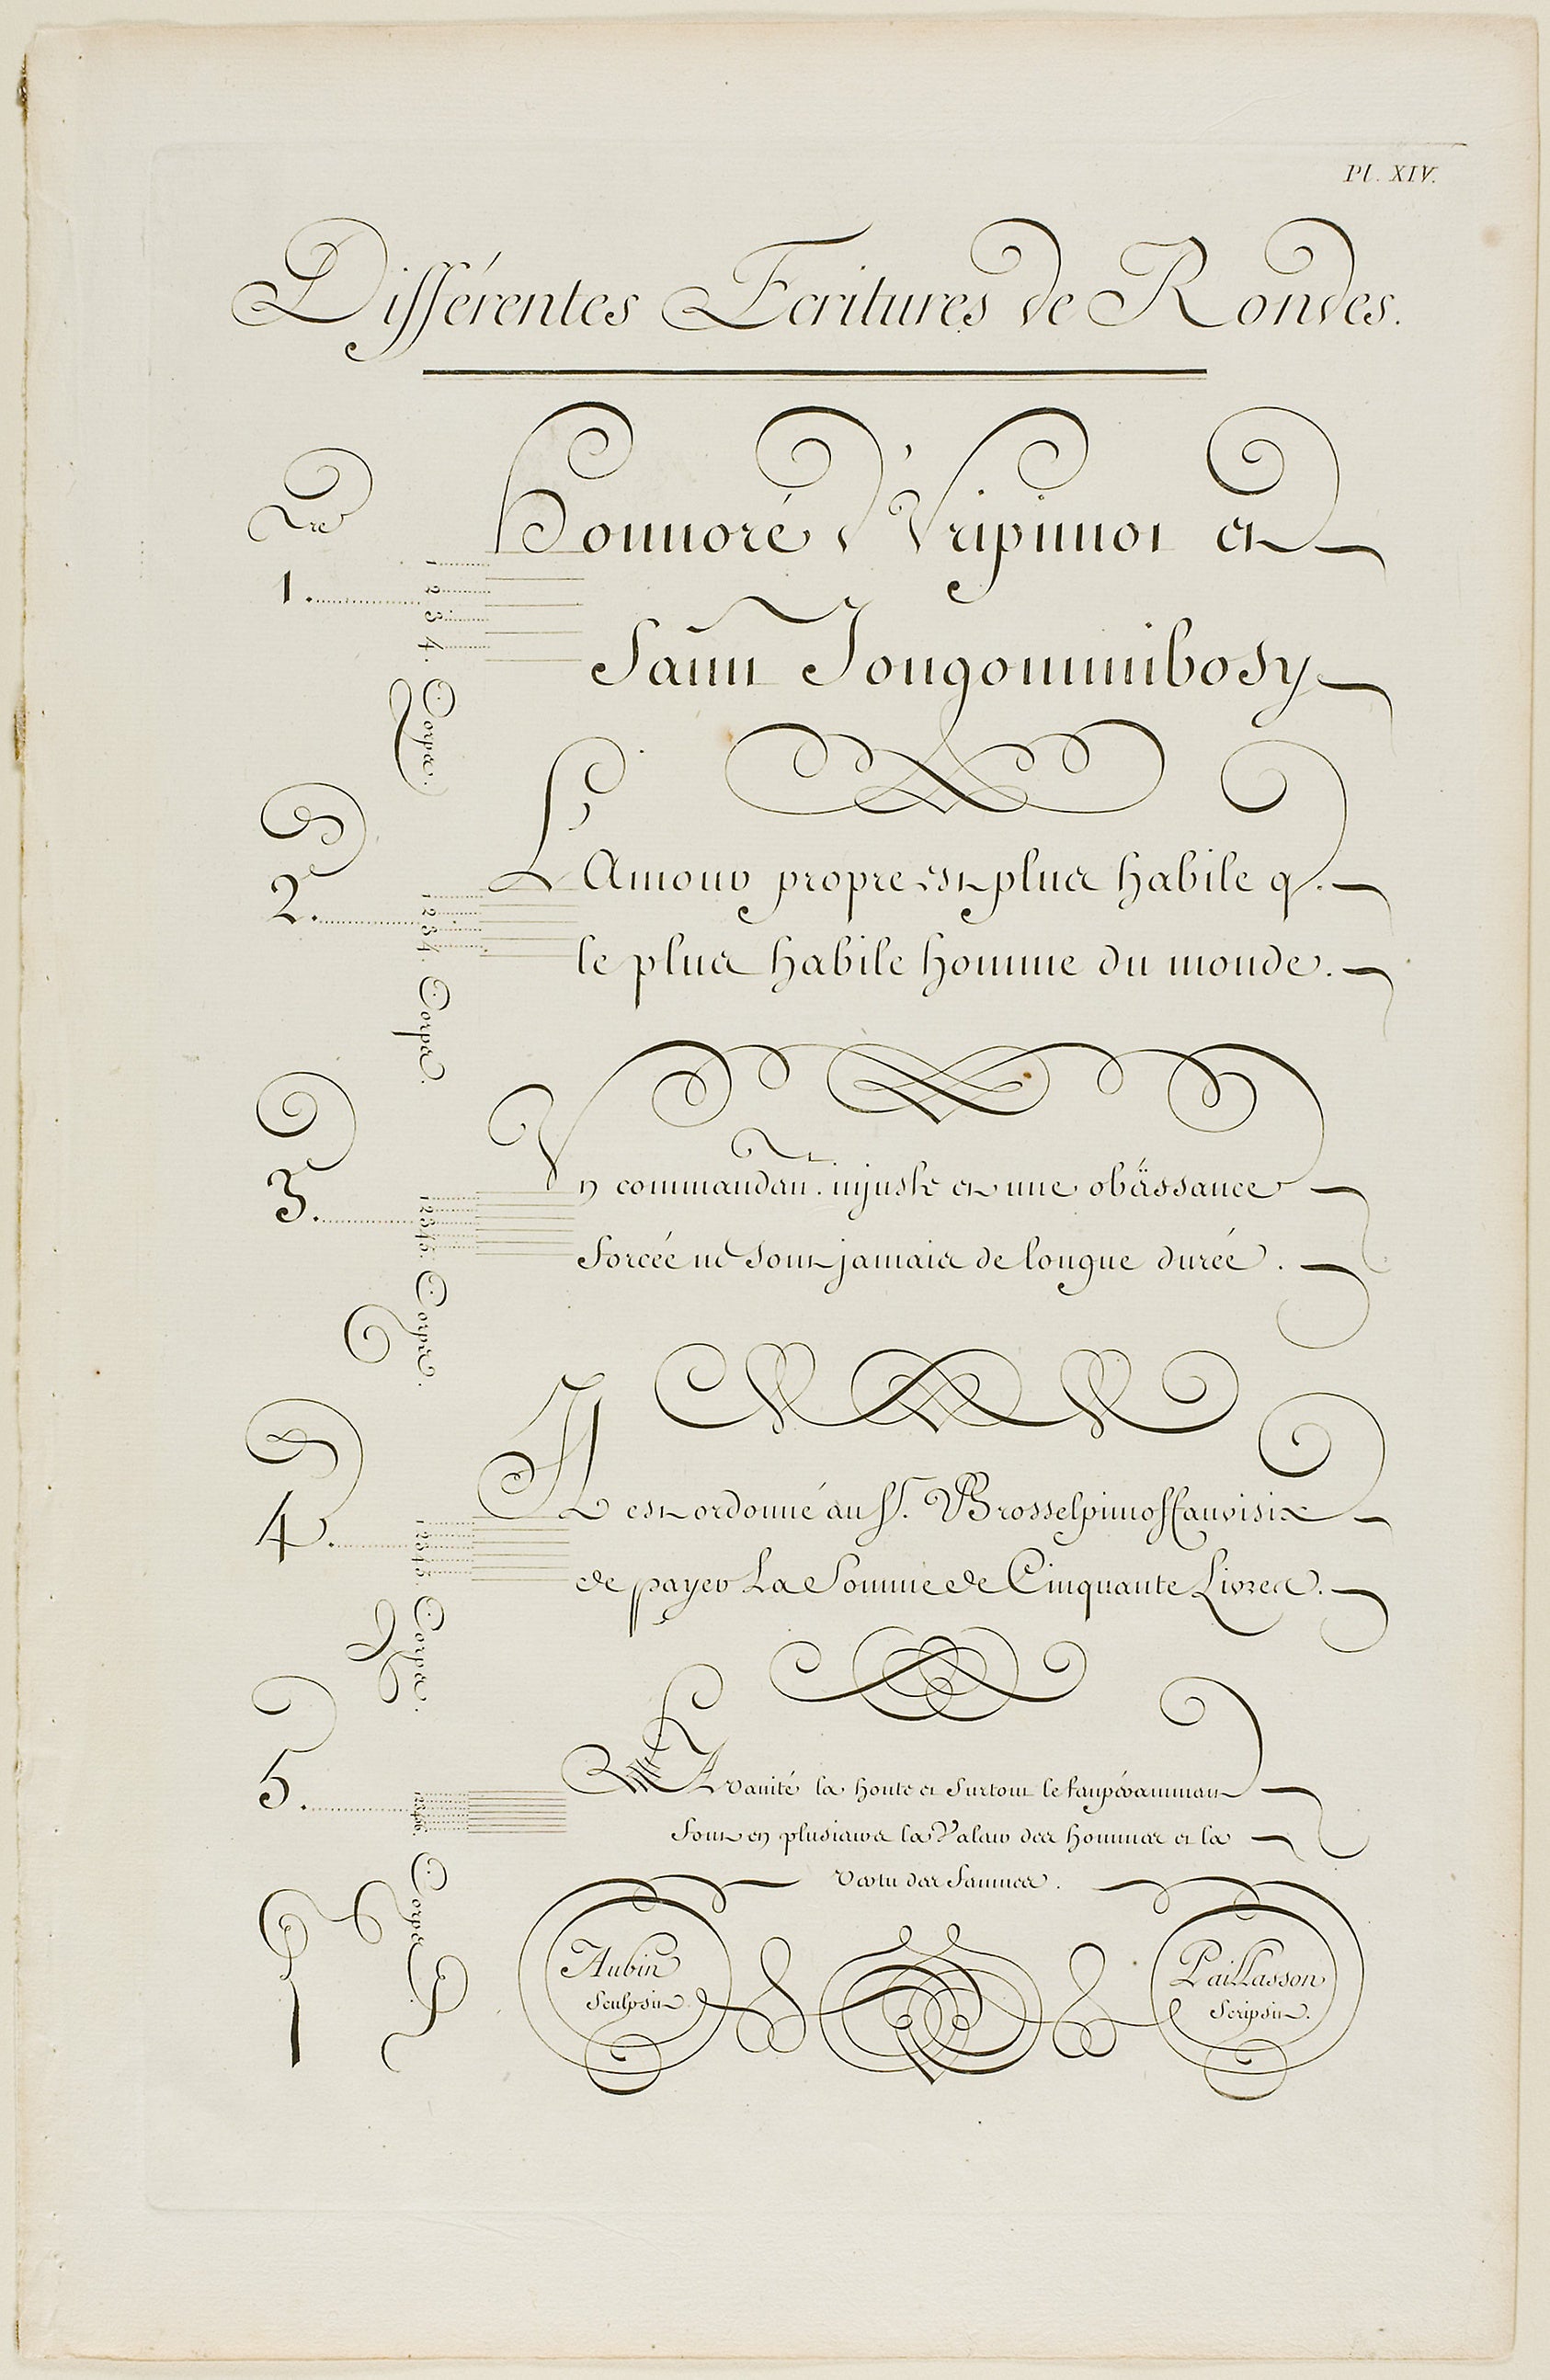 Pl. XIV.
Différentes Ecritures de Rondes.
1.
1 2 3 4. Corps.
Honnoré d'Vripimoi et
Saint Jongomimibosy
2.
1 2 3 4. Corps.
L'Amour propre est plus habile q.
le plus habile homme du monde.
3.
1 2 3 4 5. Corps.
Vn commandant. injuste et une obëissance
forcée ne sont jamais de longue durée.
4.
1 2 3 4 5. Corps.
Il est ordonné au Sr.
de payer La Somme de Cinquante Livres.
5.
1 2 3 4 5 6. Corps
LA vanité la honte et surtout le tempérament
font en plusieurs la Valeur des hommes et la
Vertu des femmes.
Aubin
Sculpsit
Paillasson
Scripsit.